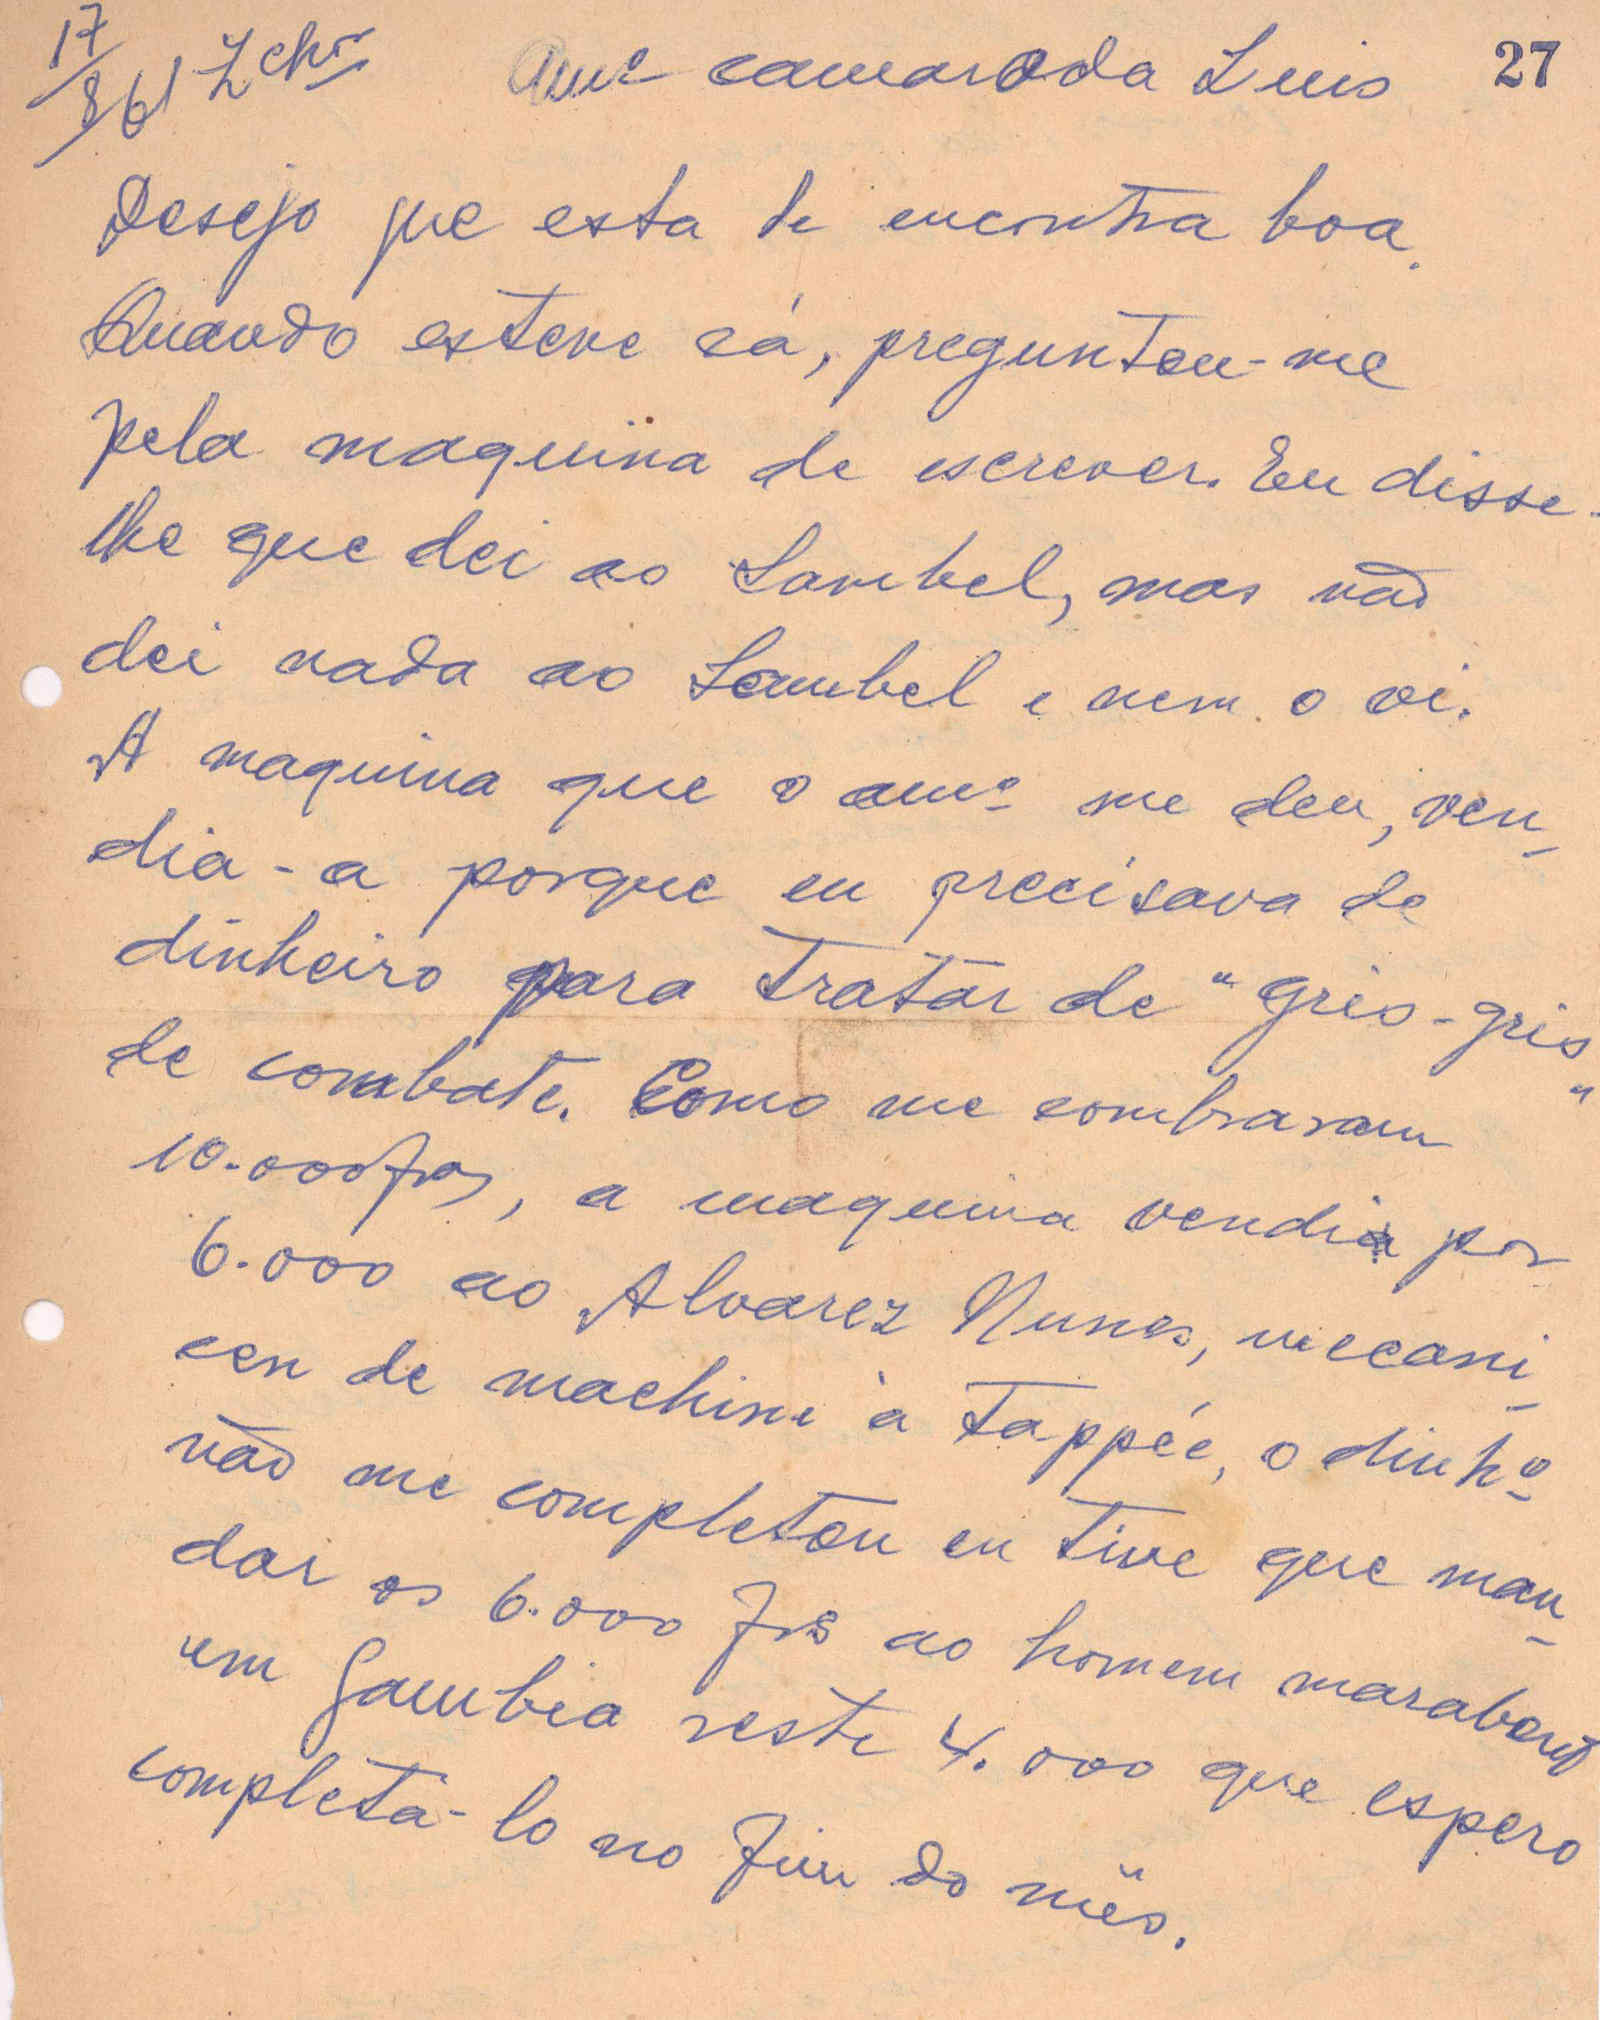 17/8/61 Zchor Amº camarada Luis 27
Desejo que esta te encontra boa.
Quando esteve cá, preguntou-me
pela maquina de escrever. Eu disse-
lhe que dei ao Lambel, mas não
dei nada ao Lambel e nem o vi.
A maquina que o amº me deu, ven-
dia-a porque eu precisava de
dinheiro para tratar de "gris-gris"
de combate. Como me combraram
10.000 frs, a maquina vendia por
6.000 ao Alvarez Nunes, mecani-
cen de machine à tappée, o dinhº
não me completou eu tive que man-
dar os 6.000 frs ao homem marabout
em Gambia reste 4.000 que espero
completá-lo no fim do mês.